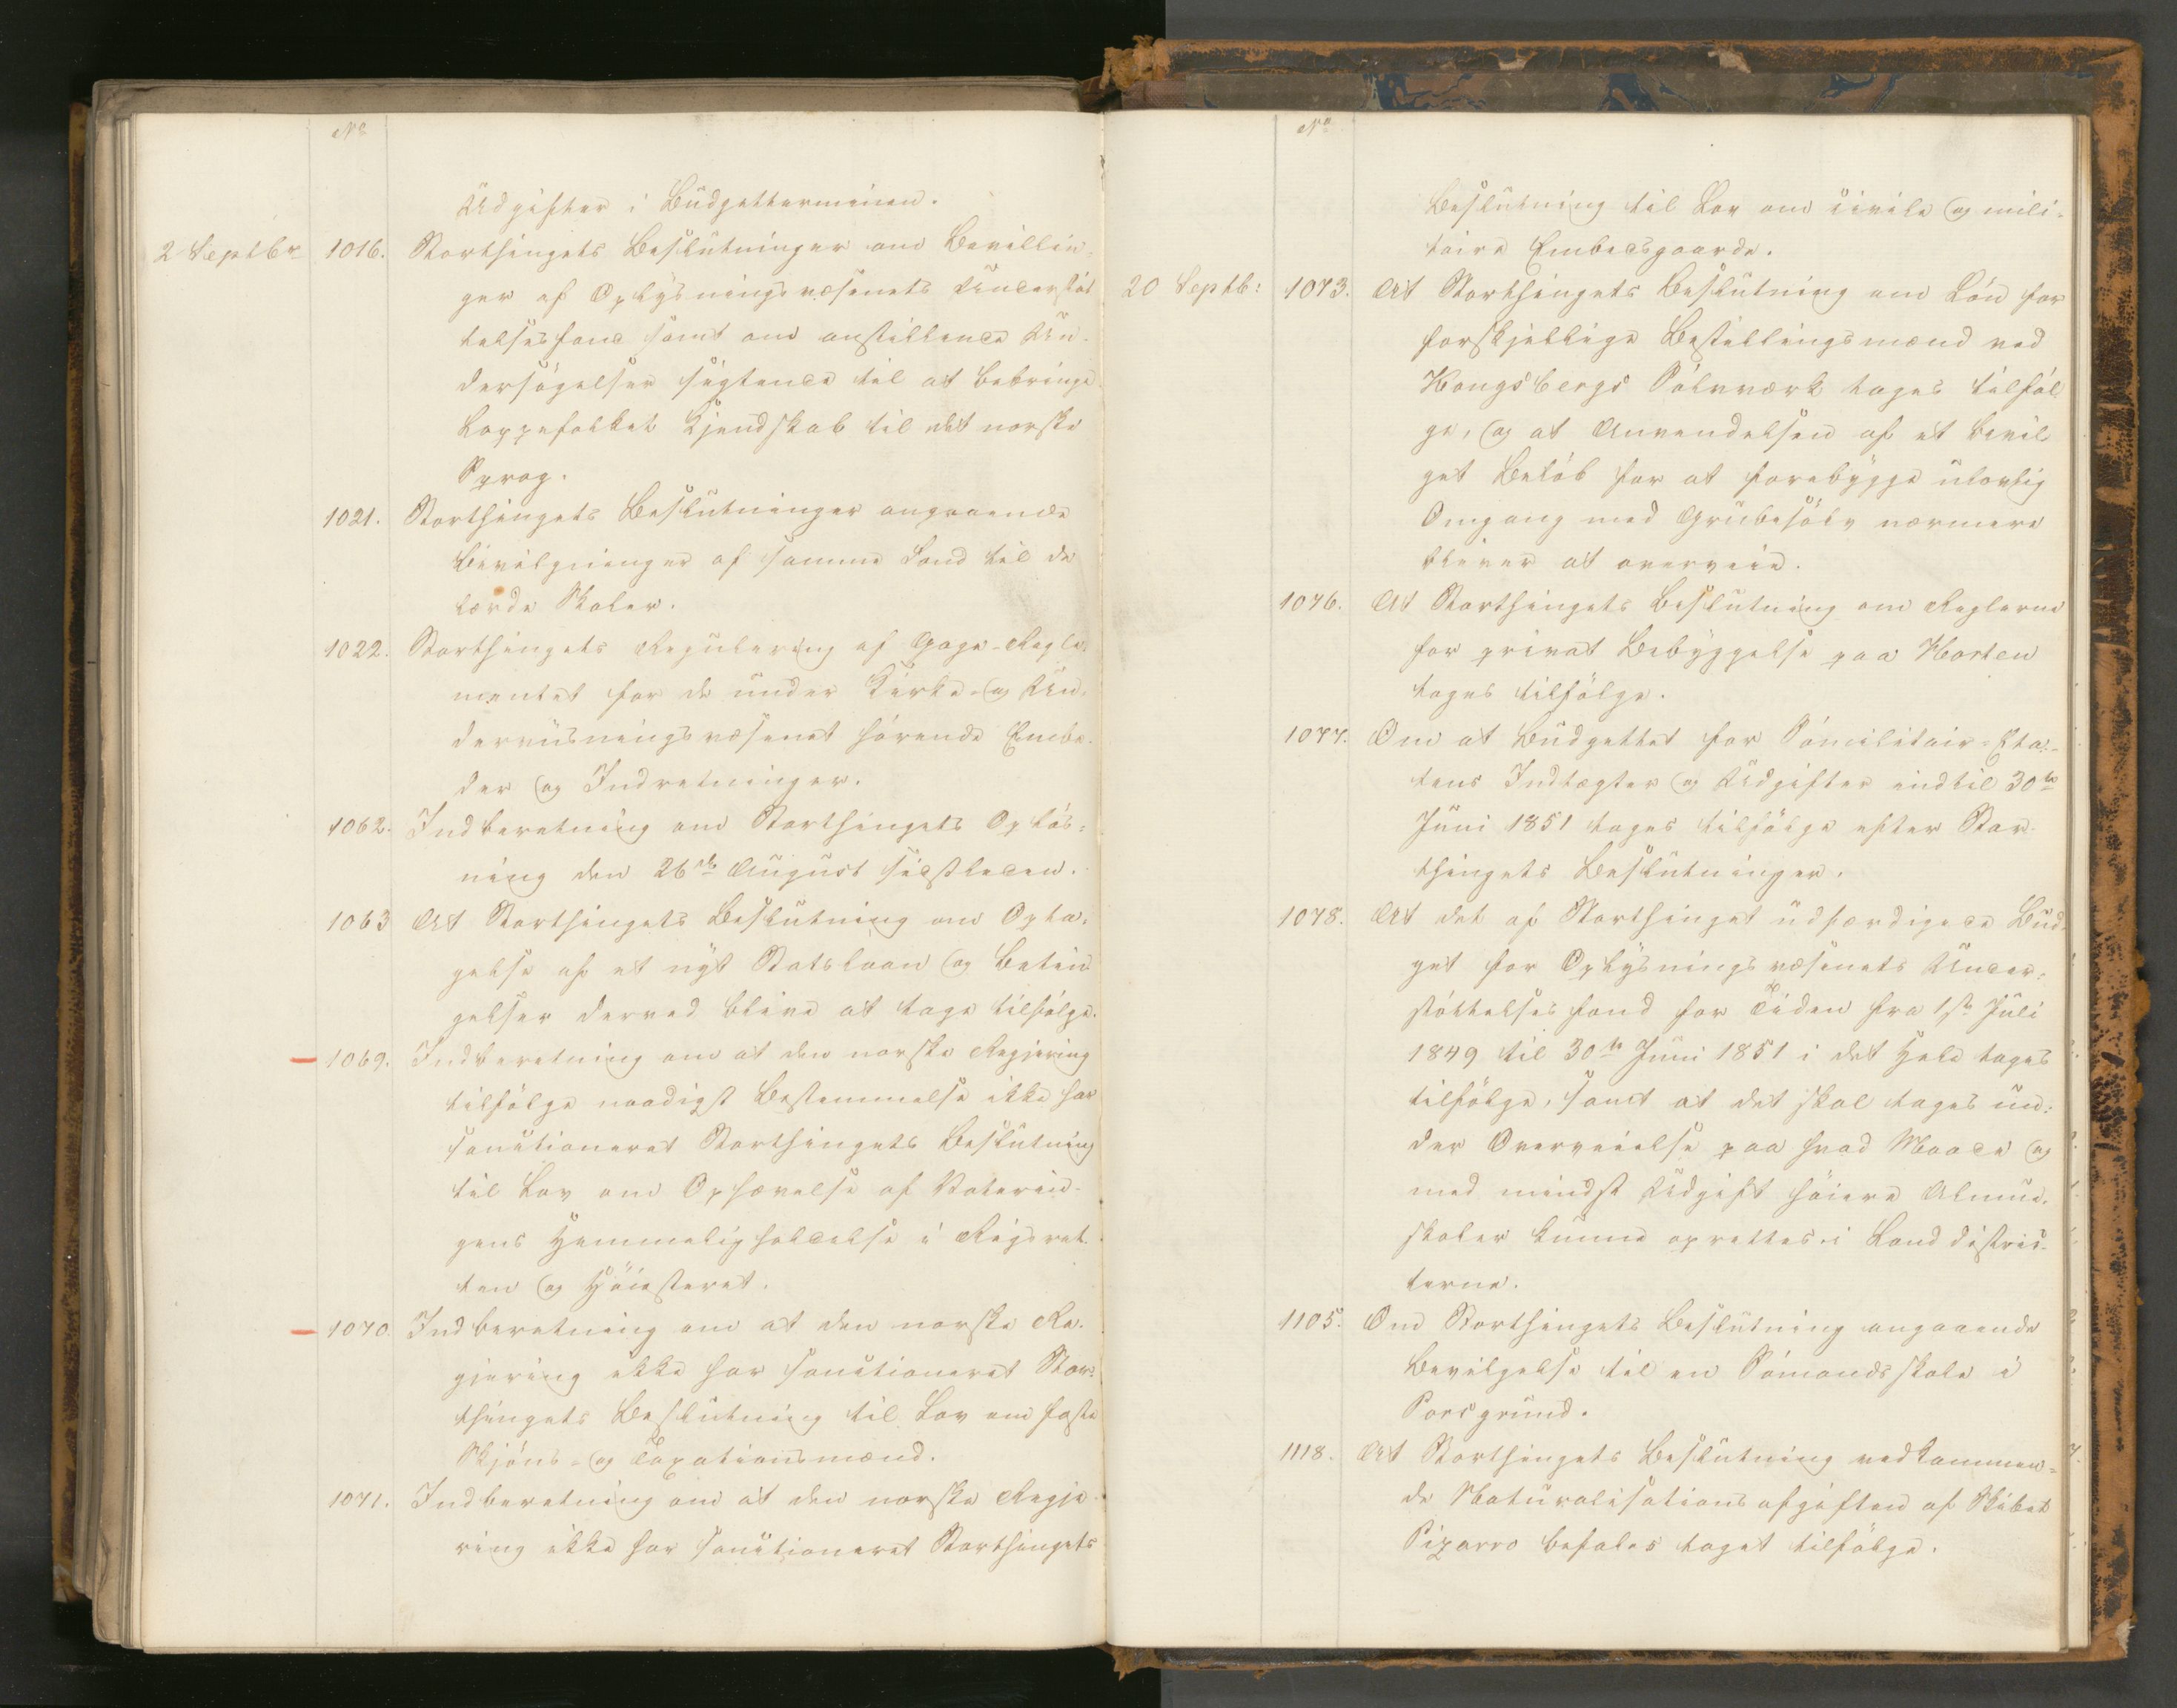 No
Udgifter i Budgetterminen.
2 Septbr 1016. Storthingets Beslutninger om Bevillin-
ger af Oplysningsvæsenets Understöt
telsesfond samt om anstillende Un-
dersögelser sigtende til at bebringe
Lappefolket Kjendskab til det norske
Sprog.
1021. Storthingets Beslutninger angaaende
Bevilgninger af samme Fond til de
lærde Skoler.
1022. Storthingets Regulering af Gage-Regle-
mentet for de under Kirke- og Un-
dervisningsvæsenet hörende Embe-
der og Indretninger.
1062. Indberetning om Storthingets Oplös-
ning den 26de August sidstleden.
1063 At Storthingets Beslutning om Opta-
gelse af et nyt Statslaan og Betin
gelser derved blive at tage tilfölge.
1069. Indberetning om at den norske Regjering
tilfölge naadigst Bestemmelse ikke har
sanctioneret Storthingets Beslutning
til Lov om Ophævelse af Voterin-
gens Hemmeligholdelse i Rigsret-
ten og Höiesteret.
1070. Indberetning om at den norske Re-
gjering ikke har sanctioneret Stor-
thingets Beslutning til Lov om faste
Skjöns- og Taxationsmænd.
1071. Indberetning om at den norske Regje-
ring ikke har sanctioneret Storthingets
No
Beslutning til Lov om civile og mili-
taire Embedsgaarde.
20 Septb: 1073. At Storthingets Beslutning om Lön for
forskjellige Bestillingsmænd ved
Kongsbergs Sölvværk tages tilföl
ge, og at Anvendelsen af et bevil
get Belöb for at forebygge ulovlig
Omgang med Grubesölv nærmere
bliver at overveie.
1076. At Storthingets Beslutning om Reglerne
for privat Bebyggelse paa Horten
tages tilfölge.
1077. Om at Budgettet for Sömilitair-Eta-
tens Indtægter og Udgifter indtil 30te
Juni 1851 tages tilfölge efter Stor-
thingets Beslutninger.
1078. At det af Storthinget udfærdigede Bud-
get for Oplysningsvæsenets Under-
stöttelsesfond for Tiden fra 1ste Juli
1849 til 30te Juni 1851 i det Hele tages
tilfölge, samt at det skal tages un-
der Overveielse paa hvad Maade og
med mindst Udgift höiere Almue-
skoler kunne oprettes i Landdistric-
terne.
1105. Om Storthingets Beslutning angaaende
Bevilgelse til en Sömandsskole i
Porsgrund.
1118. At Storthingets Beslutning vedkommen-
de Naturalisationsafgiften af Skibet
Pizarro befales taget tilfölge.